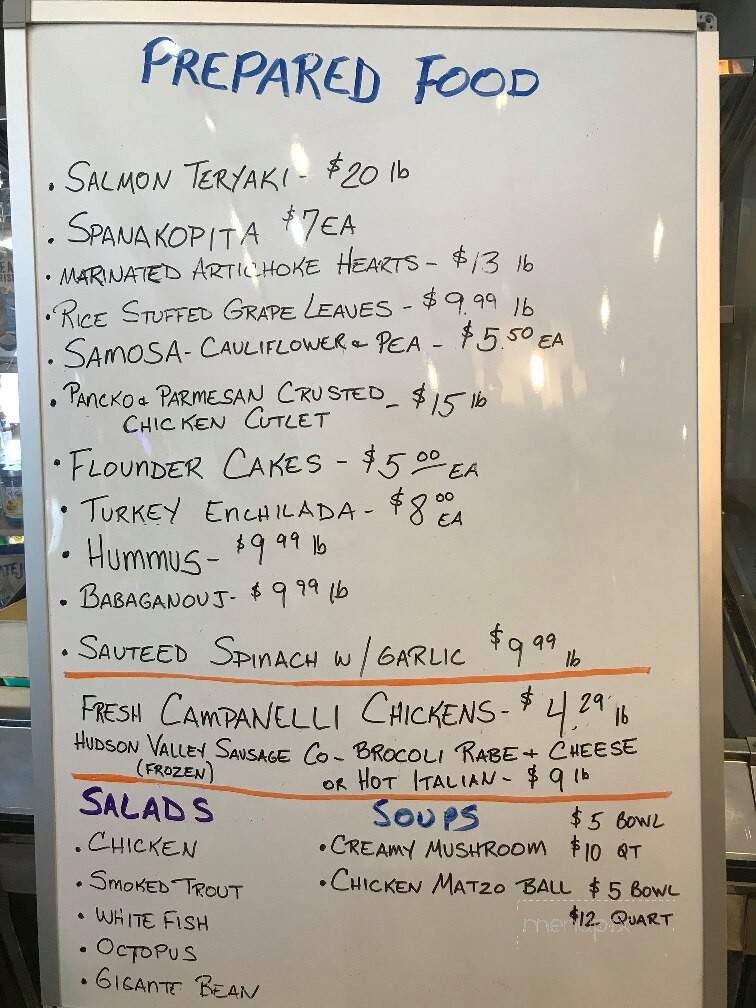 PREPARED FOOD
• SALMON TERYAKI - $20 lb
• SPANAKOPITA $7 EA
• MARINATED ARTICHOKE HEARTS - $13 lb
• RICE STUFFED GRAPE LEAVES - $9.99 lb
• SAMOSA - CAULIFLOWER & PEA - $5.50 EA
• PANCKO & PARMESAN CRUSTED - $15 lb
CHICKEN CUTLET
• FLOUNDER CAKES - $5 00 EA
• TURKEY ENCHILADA - $8 00 EA
• HUMMUS - $9 99 lb
• BABAGANOUJ - $9 99 lb
• SAUTEED SPINACH W/GARLIC $9 99 lb
FRESH CAMPANELLI CHICKENS - $4.29 lb
HUDSON VALLEY SAUSAGE CO - BROCOLI RABE + CHEESE
(FROZEN) OR HOT ITALIAN - $9 lb
SALADS
• CHICKEN
• SMOKED TROUT
• WHITE FISH
• OCTOPUS
• GIGANTE BEAN
SOUPS $5 BOWL
• CREAMY MUSHROOM $10 QT
• CHICKEN MATZO BALL $5 BOWL
$12 QUART